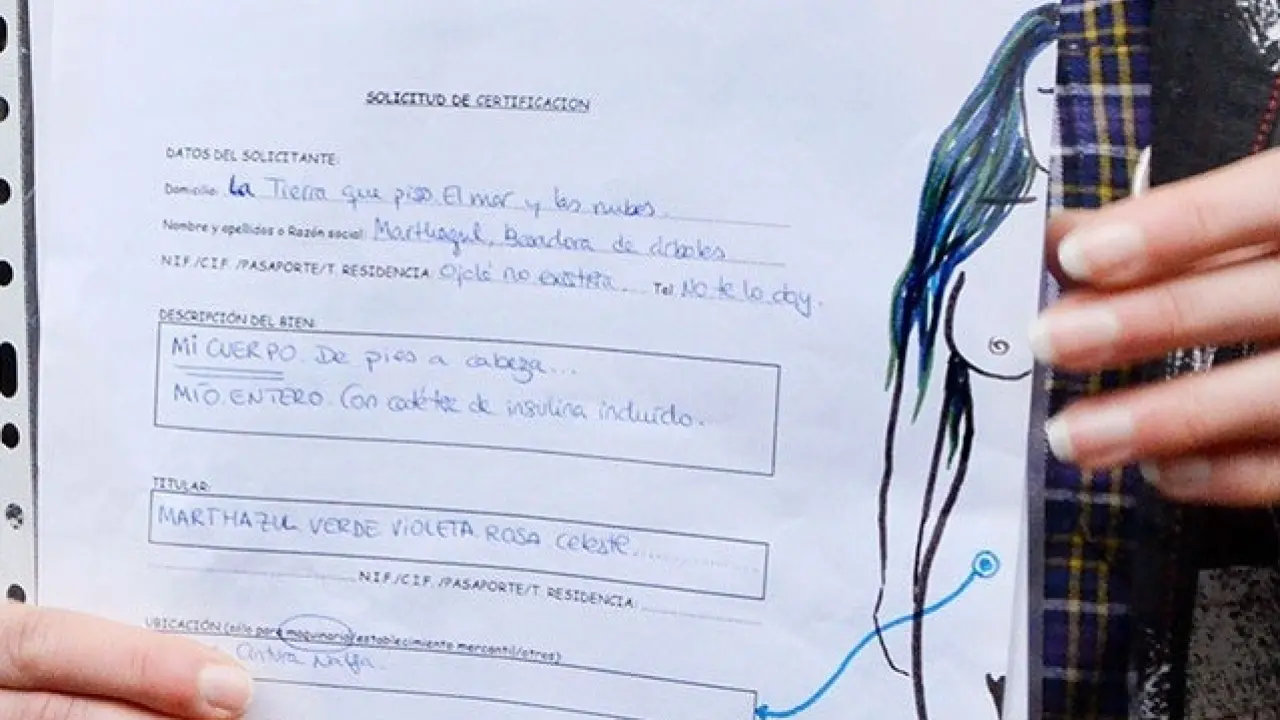 SOLICITUD DE CERTIFICACION
DATOS DEL SOLICITANTE:
Domicilio: La Tierra que piso. El mar y las nubes.
Nombre y apellidos o Razón social: Marthazul, Bandora de árboles
N.I.F./C.I.F. /PASAPORTE/T. RESIDENCIA: Ojalá no existiera... Tel: No te lo doy.
DESCRIPCIÓN DEL BIEN:
Mi CUERPO. De pies a cabeza...
MÍO. ENTERO. Con catéter de insulina incluído.
TITULAR:
MARTHAZUL VERDE VIOLETA ROSA Celeste
N.I.F./C.I.F. /PASAPORTE/T. RESIDENCIA:
UBICACIÓN (sólo para maquinaria/establecimiento mercantil/otros)